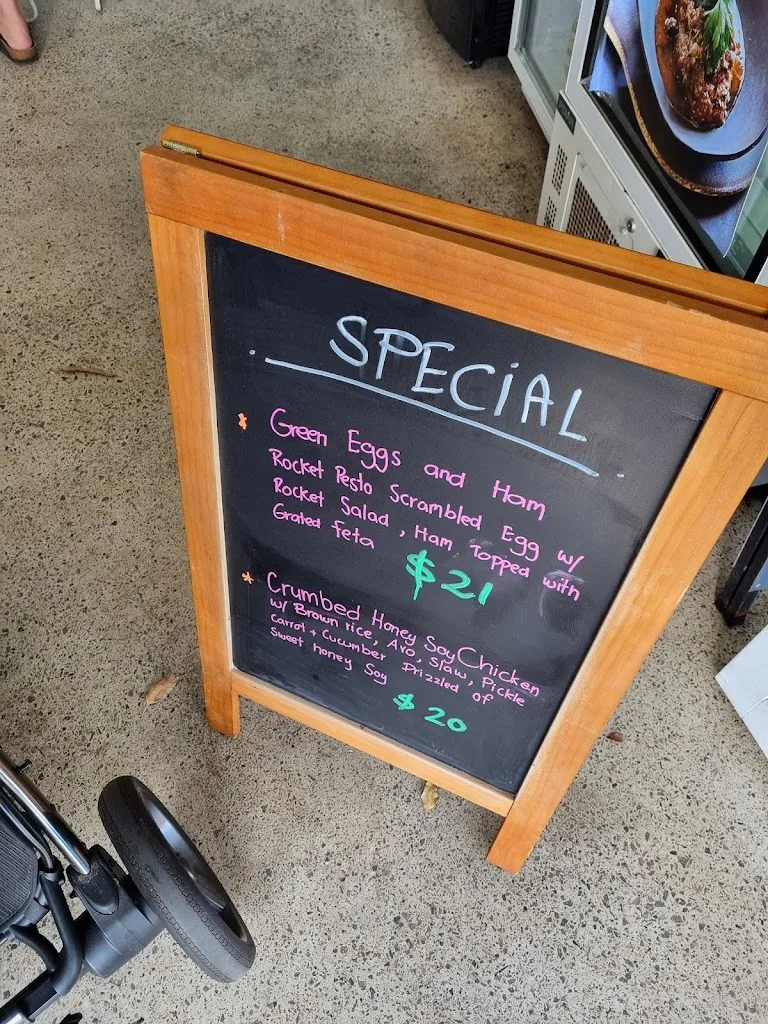 SPECIAL
* Green Eggs and Ham
Rocket Pesto Scrambled Egg w/
Rocket Salad, Ham Topped with
Grated feta
$21
* Crumbed Honey Soy Chicken
w/ Brown rice, Avo, slaw, Pickle
Carrot + Cucumber Drizzled of
Sweet honey Soy
$20